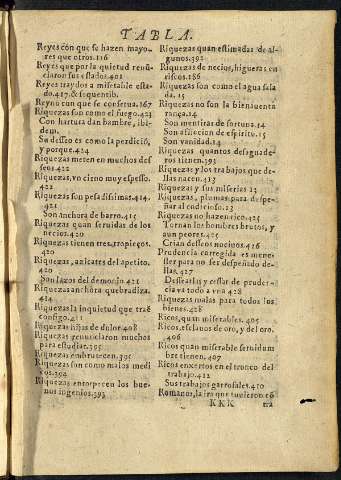 TABLA.
Reyes con que se hazen mayo-
res que otros.116
Reyes que por la quietud renũ-
ciaron sus estados.402
Reyes traydos a miserable esta-
do.417.& sequentib.
Reyno con que se conserua.367
Riquezas son como el fuego.423
Con hartura dan hambre, ibi-
dem.
Su desseo es como la perdiciõ,
y porque.424
Riquezas meten en muchos des
seos.422
Riquezas, vn cieno muy espesso.
422
Riquezas son pesadissimas.414.
421
Son anchora de barro.415
Riquezas quan seruidas de los
necios.420
Riquezas tienen tres tropieços.
420
Riquezas, açicates del apetito.
420
Son lazos del demonio.421
Riquezas anchora quebradiza.
414
Riquezas la inquietud que traẽ
consigo.411
Riquezas hijas de dolor.408
Riquezas renunciaron muchos
para estudiar.395
Riquezas embrutecen.395
Riquezas son como malos medi
cos.394
Riquezas entorpecen los bue-
nos ingenios.393
Riquezas quan estimadas de al-
gunos.392
Riquezas de necios, higueras en
riscos.186
Riquezas son como el agua sala
da.15
Riquezas no son la bienauenta
rança.14
Son mentiras de fortuna.14
Son afliccion de espiritu.15
Son vanidad.14
Riquezas quantos desaguade-
ros tienen.393
Riquezas y los trabajos que de-
llas nacen.413
Riquezas y sus miserias
Riquezas, plumas para despe-
ñar al codicioso.
Riquezas no hazen rico.425
Tornan los hombres brutos, y
aun peores.425
Crian desseos nocinos.426
Prudencia corregida es mene-
ster para no ser despeñado de-
llas.427
Dessearlas y cessar de pruden-
cia es todo a vna.428
Riquezas malas para todos los
bienes.428
Ricos, quan miserables.405
Ricos, esclauos de oro, y del oro.
406
Ricos quan miserable seruidum
bre tienen.407
Ricos enxertos en el tronco del
trabajo.412
Sus trabajos garrofales.410
Romanos, la ira que tuuieron cõ
KKK tra